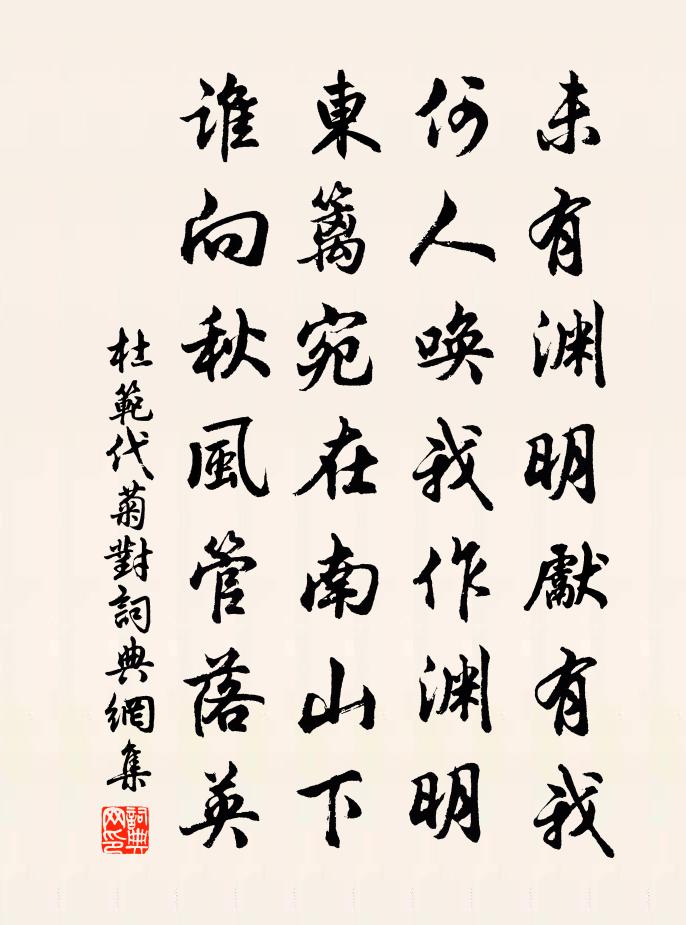 未有渊明獻有我
何人喚我作渊明
東籬宛在南山下
誰向秋風管落英
杜範代菊對詞典網集
詞典網印